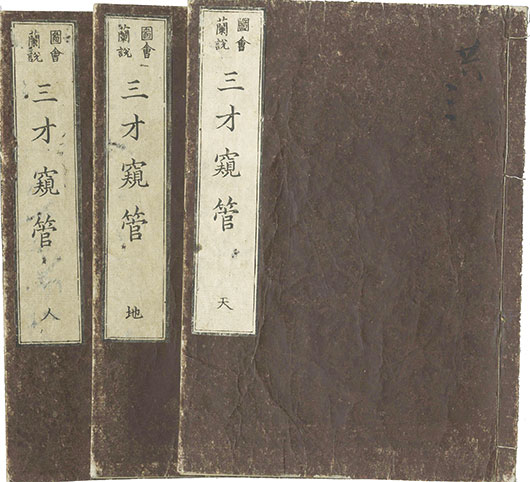 圖會
蘭説
三才窺管
天
圖會
蘭説
三才窺管
地
圖會
蘭説
三才窺管
人